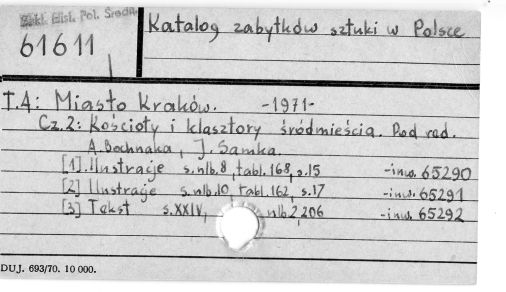 Zakł. Hist. Pol. Średn.
61611
Katalog zabytków sztuki w Polsce
T.4: Miasto Kraków. -1971-
Cz.2: Kościoły i klasztory śródmieścia. Pod red.
A. Bochnaka, J. Samka.
[1]. Ilustracje s.nlb.8, tabl.168, s.15 -inw. 65290
[2] Ilustracje s.nlb.10, tabl.162, s.17 -inw. 65291
[3] Tekst s.XXIV, nlb.2, 206 -inw. 65292
DUJ. 693/70. 10 000.